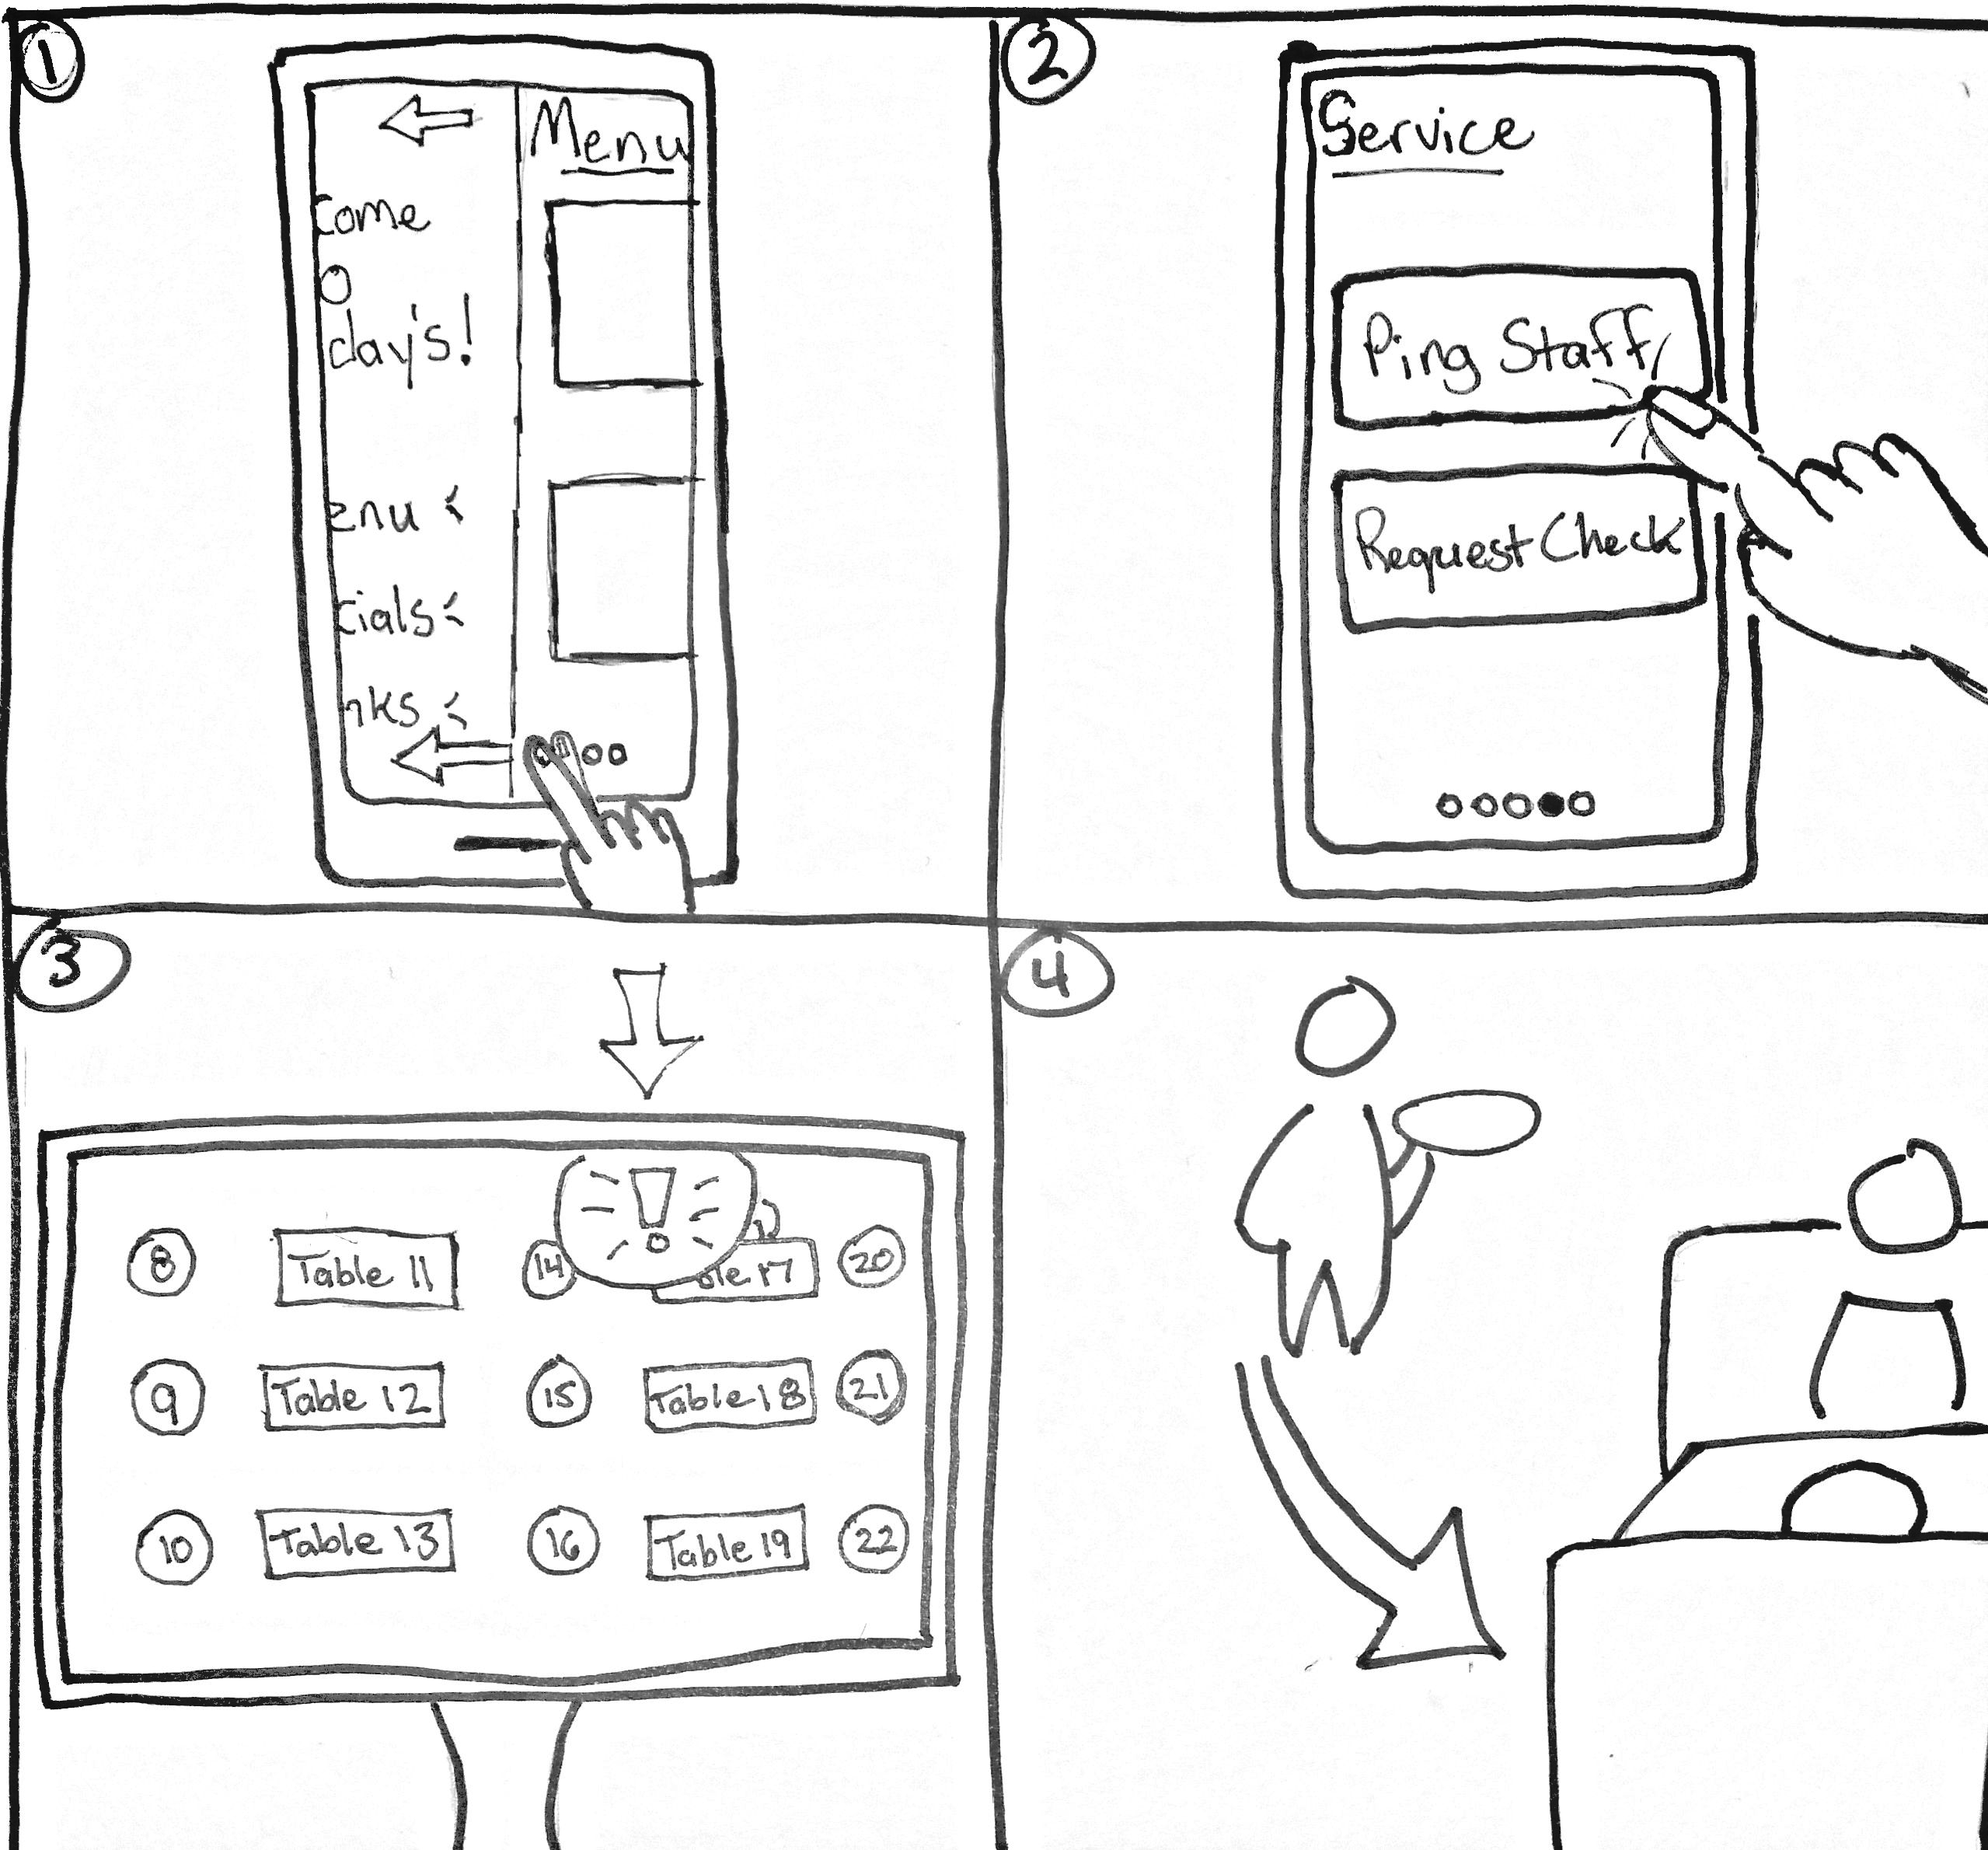 1
Menu
come
o
day's!
enu <
cials <
nks <
2
Service
Ping Staff
Request Check
3
!
8 Table 11 14 ble 17 20
9 Table 12 15 Table 18 21
10 Table 13 16 Table 19 22
4